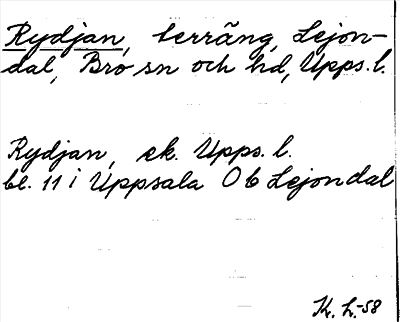 Rydjan, terräng, Lejon-
dal, Bro sn och hd, Upps. l.
Rydjan, ek. Upps. l.
bl. 11 i Uppsala Ob Lejondal